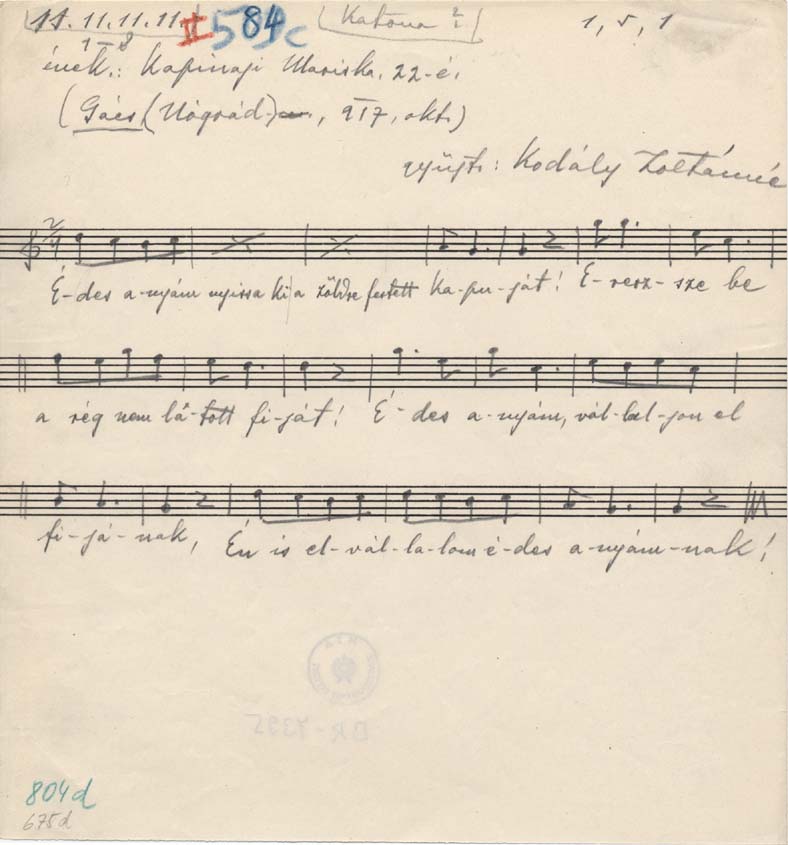 11. 11. 11. 11. II 584c Katona 2/1 1, 5, 1
1–8
ének.: Kapinaji Mariska, 22-é.
(Gács (Nógrád), 917, okt.)
gyüjt.: Kodály Zoltánné
2/4
É-des a-nyám nyissa ki a zöldre festett ka-pu-ját! E-resz-sze be
a rég nem lá-tott fi-ját! É-des a-nyám, vál-lal-jon el
fi-já-nak, Én is el-vál-la-lom é-des a-nyám-nak!
BR-4392
804d
675d